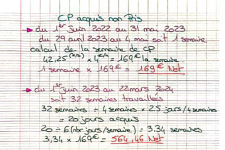 CP acquis non Pris
→ du 1er juin 2022 au 31 mai 2023
du 29 avril 2023 au 4 mai soit 1 semaine
calcul de la semaine de CP
42,25 (h/s) x 4€/h = 169€ la semaine
1 semaine x 169€ = 169€ Net
→ du 1er juin 2023 au 22 mars 2024
soit 32 semaines travaillées
32 semaines ÷ 4 semaines x 2,5 jours/4 semaines
= 20 jours acquis
20 ÷ 6 (nbr jours/semaine) = 3,34 semaines
3,34 x 169€ = 564,46 Net